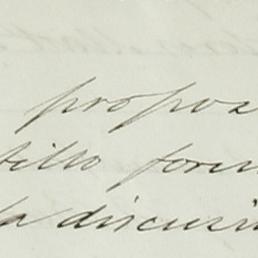 propos
tillo form
la discusi